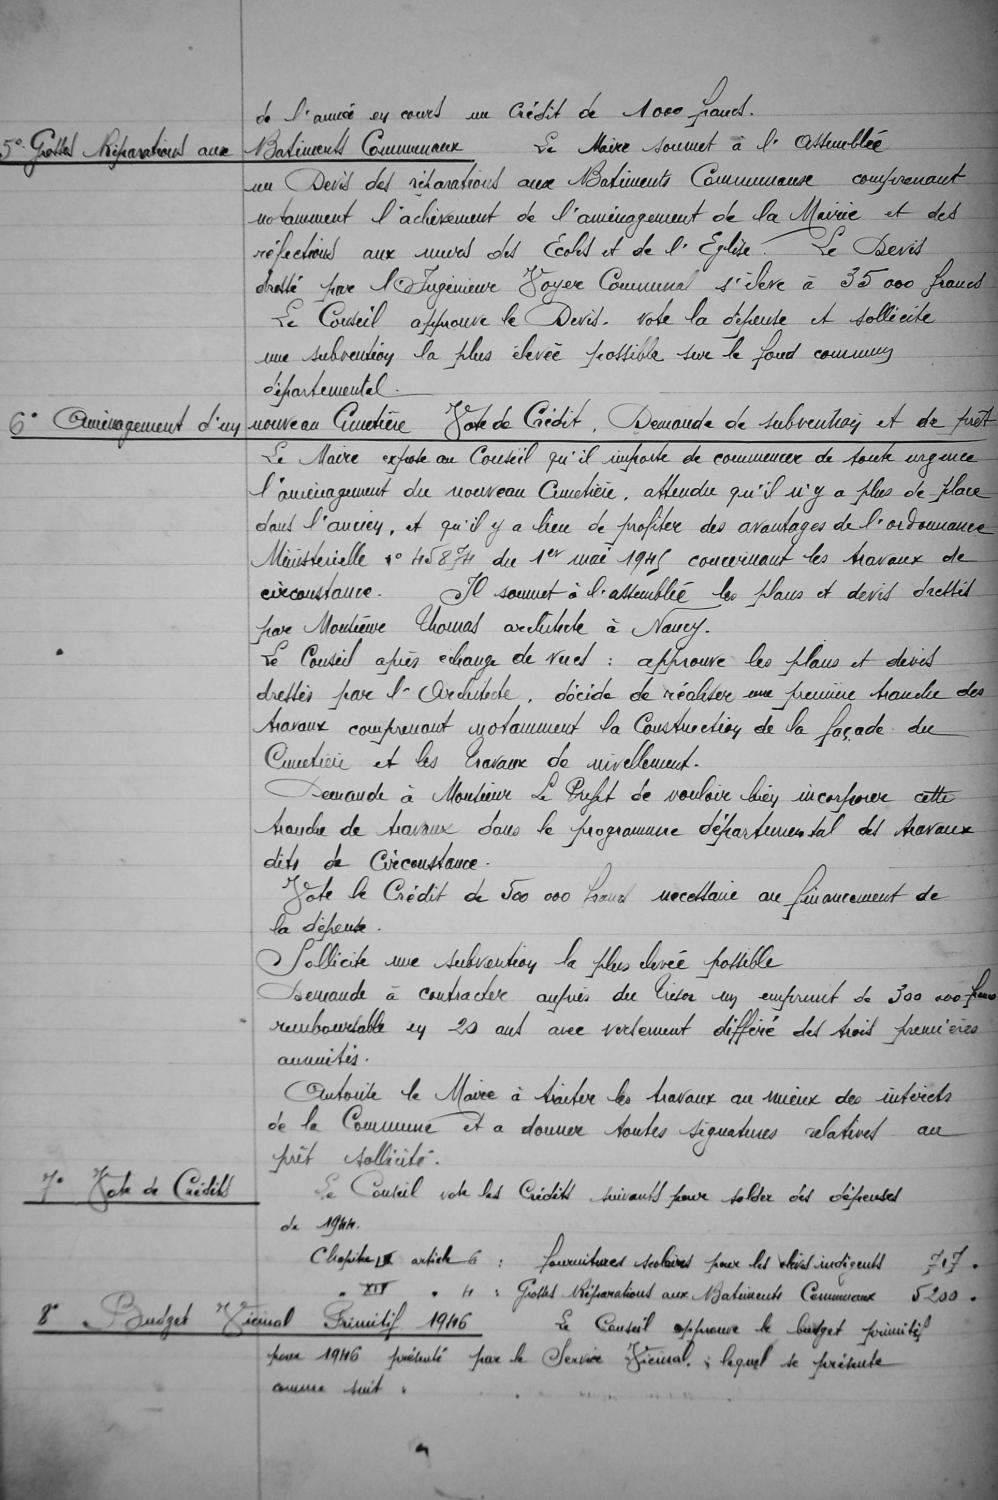 de l'année en cours un Crédit de 1000 francs.
5° Grosses Réparations aux Batiments Communaux Le Maire soumet à l'Assemblée
un Devis des réparations aux Batiments Communaux comprenant
notamment l'achèvement de l'aménagement de la Mairie et des
réfections aux murs des Ecoles et de l'Eglise. Le Devis
dressé par l'Ingénieur Voyer Communal s'élève à 35 000 francs
Le Conseil approuve le Devis. vote la dépense et sollicite
une subvention la plus élevée possible sur le fond commun
départemental.
6° Aménagement d'un nouveau Cimetière Vote de Crédit, Demande de subvention et de prêt
Le Maire expose au Conseil qu'il importe de commencer de toute urgence
l'aménagement du nouveau Cimetière, attendu qu'il n'y a plus de place
dans l'ancien, et qu'il y a lieu de profiter des avantages de l'ordonnance
Ministerielle n° 45874 du 1er mai 1945 concernant les travaux de
circonstance. Il soumet à l'assemblée les plans et devis dressés
par Monsieur Thomas architecte à Nancy.
Le Conseil après echange de vues : approuve les plans et devis
dressés par l'Architecte, décide de réaliser une première tranche des
travaux comprenant notamment la Construction de la façade du
Cimetière et les Travaux de nivellement.
Demande à Monsieur Le Préfet de vouloir bien incorporer cette
tranche de travaux dans le programme départemental des travaux
dits de Circonstance.
Vote le Crédit de 500 000 francs necessaire au financement de
la dépense.
Sollicite une subvention la plus elevée possible
Demande à contracter auprès du Trésor un emprunt de 300 000 francs
remboursable en 20 ans avec versement différé des trois premières
annuités.
Autorise le Maire à traiter les travaux au mieux des intérêts
de la Commune et a donner toutes signatures relatives au
prêt sollicité.
7° Vote de Crédits Le Conseil vote les Crédits suivants pour solder des dépenses
de 1944.
Chapitre IX article 6 : fournitures scolaires pour les élèves indigents 717.
" XIV " 4 : Grosses Réparations aux Batiments Communaux 5200.
8° Budget Vicinal Primitif 1946 Le Conseil approuve le budget primitif
pour 1946 présenté par le Service Vicinal, lequel se présente
comme suit :